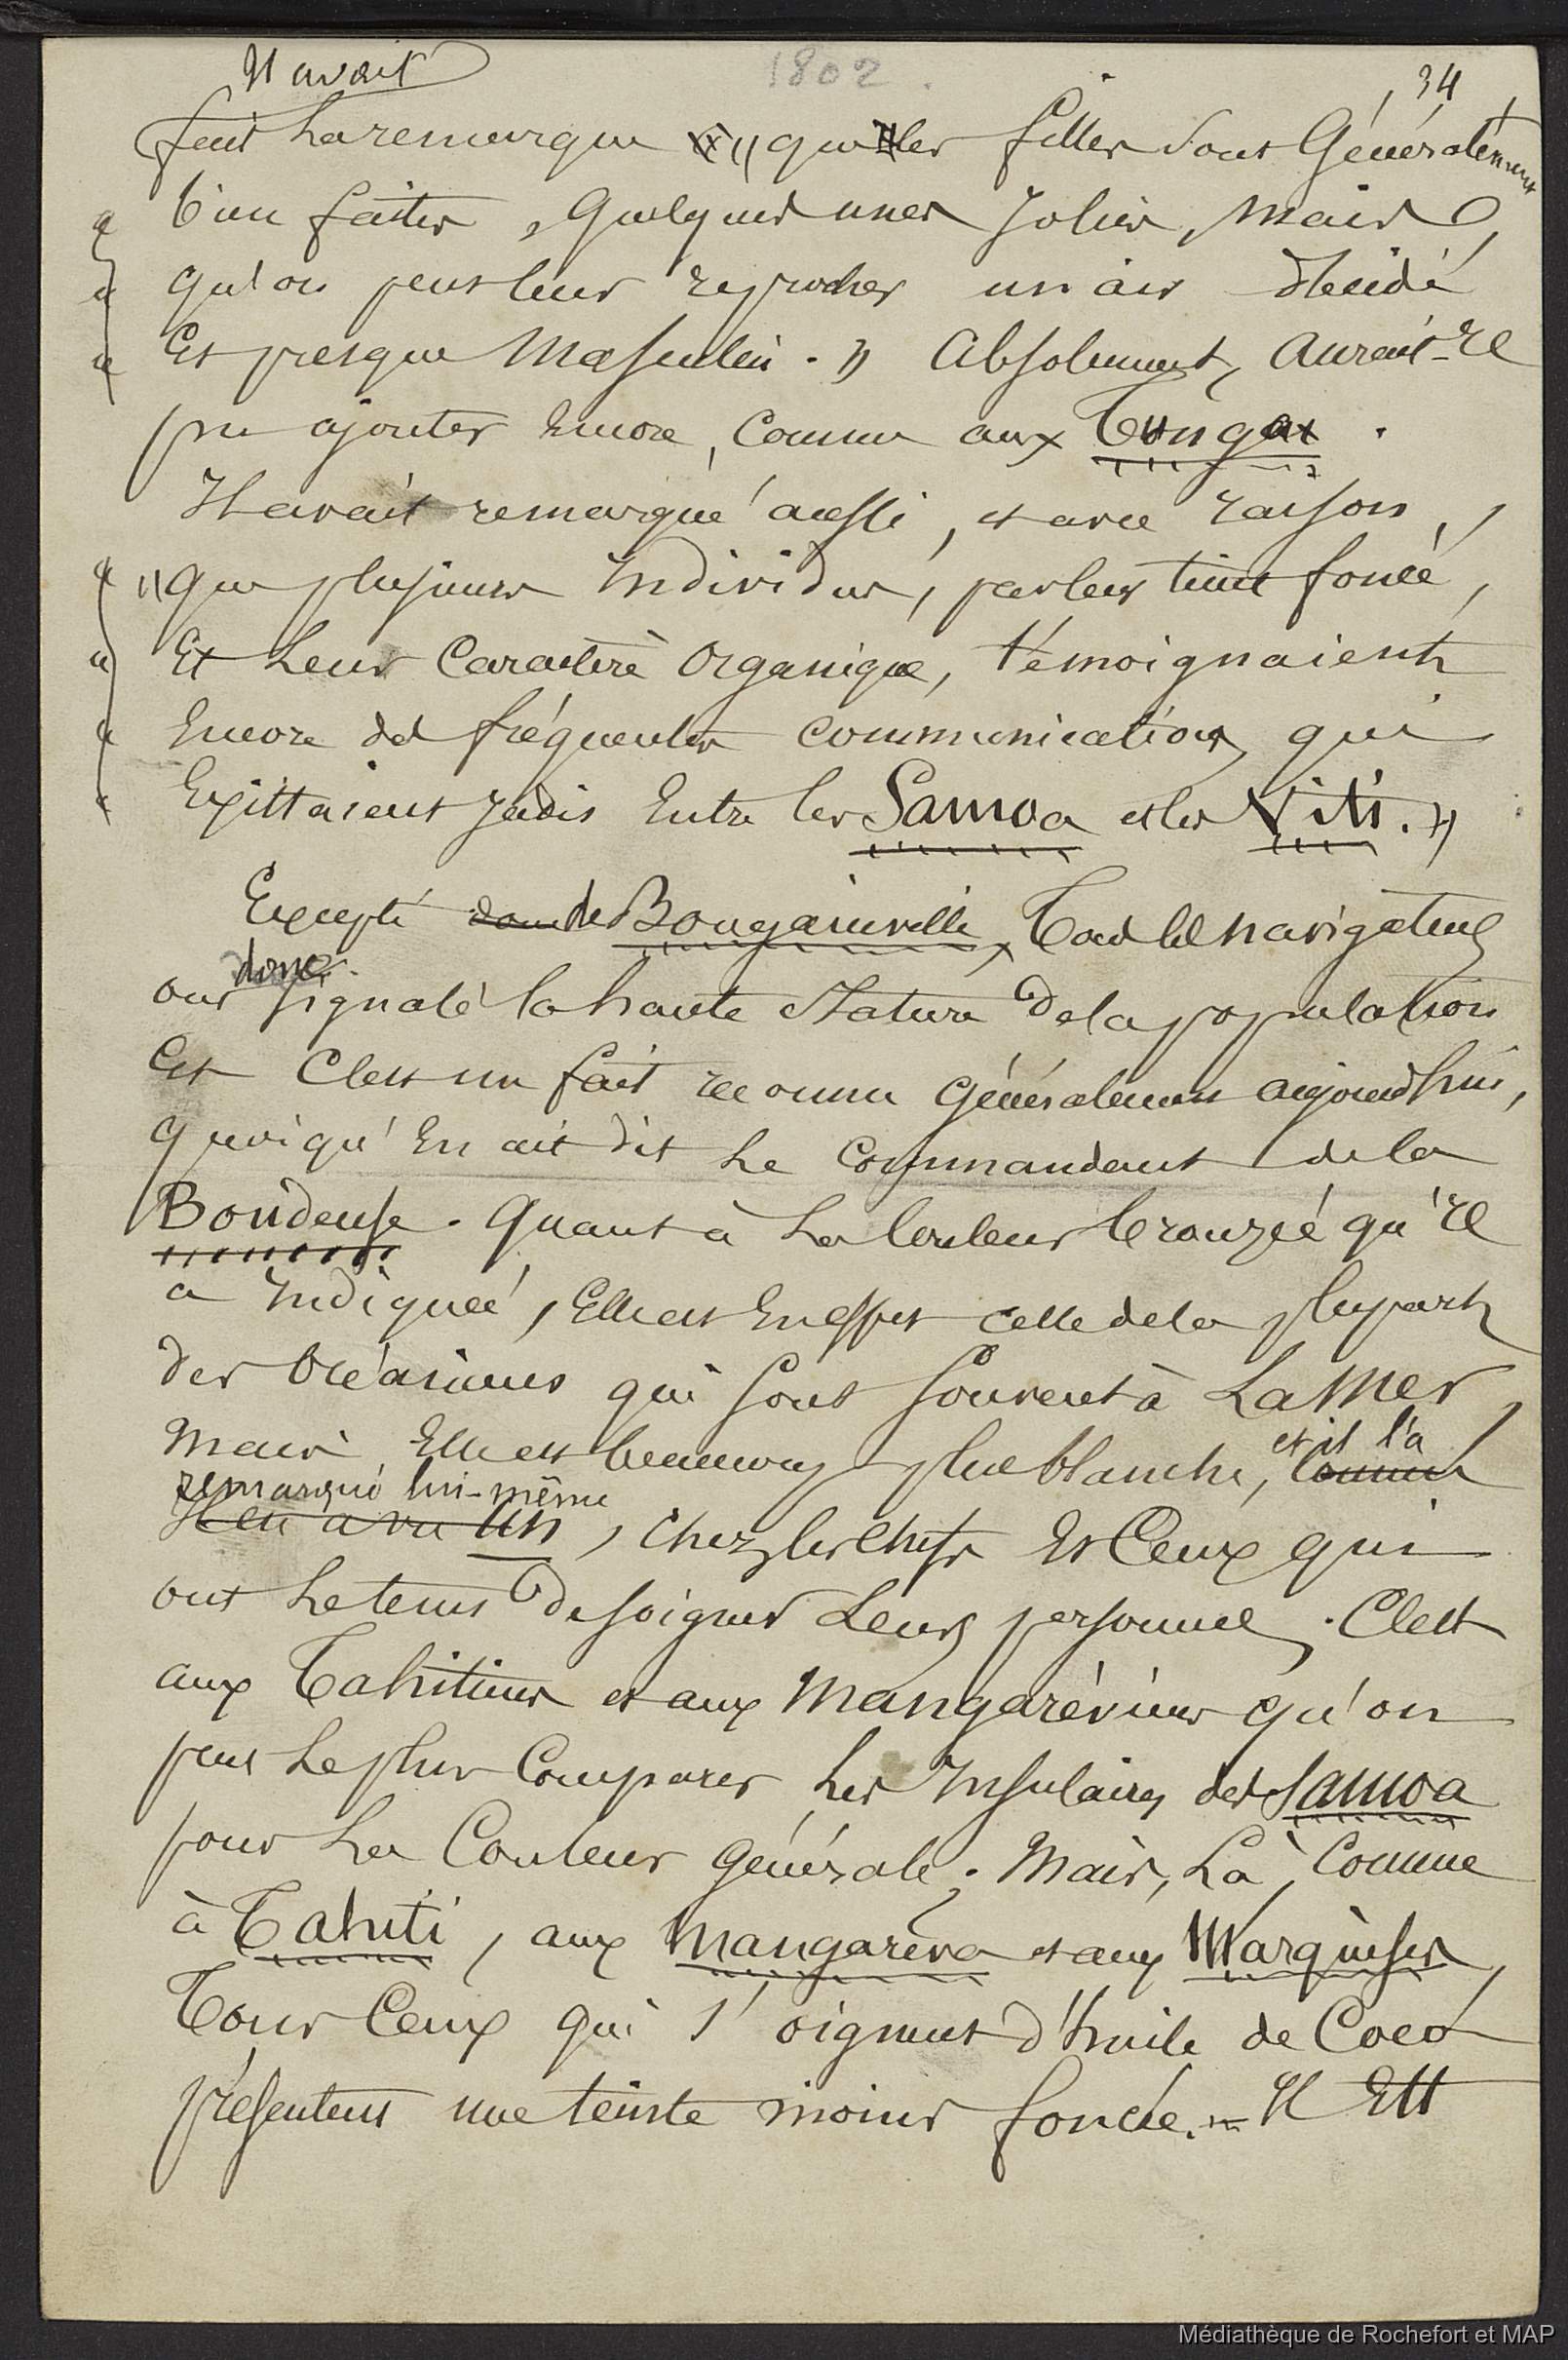 Il avait
1802.
34
fait la remarque " que les filles sont Généralement
bien faites, quelques unes Jolies, Mais
qu'on peut leur reprocher un air décidé
Et presque Masculin. " Absolument, aurait-il
pu ajouter Encore, comme aux Tunga.
Il avait remarqué aussi, et avec raison,
" que plusieurs Individus, par leur teint foncé,
Et Leur Caractère Organique, témoignaient
Encore des fréquentes communications qui
Existaient Jadis Entre les Samoa et les Viti. "
Excepté donc de Bougainville, Tous les navigateurs
donc
ont signalé la haute Stature de la population
Et C'est un fait reconnu généralement aujourd'hui,
quoiqu'En ait dit Le Commandant de la
Boudeuse. Quant à La Couleur bronzée qu'il
a Indiquée, Elle est En effet celle de la plupart
des Océaniens qui sont souvent à La Mer,
et il l'a
Mais Elle est beaucoup plus blanche, comme
remarqué lui-même
Il en a vu un, chez les chefs Et Ceux qui
ont Le temps de soigner Leurs personnes. C'est
aux Tahitiens et aux Mangaréviens qu'on
peut Le plus Comparer Les Insulaires des Samoa
pour La Couleur générale; Mais, Là, Comme
à Tahiti, aux Mangareva et aux Marquises,
Tous Ceux qui s'oignent d'huile de Coco
présentent une teinte moins foncée. — Il Est
Médiathèque de Rochefort et MAP